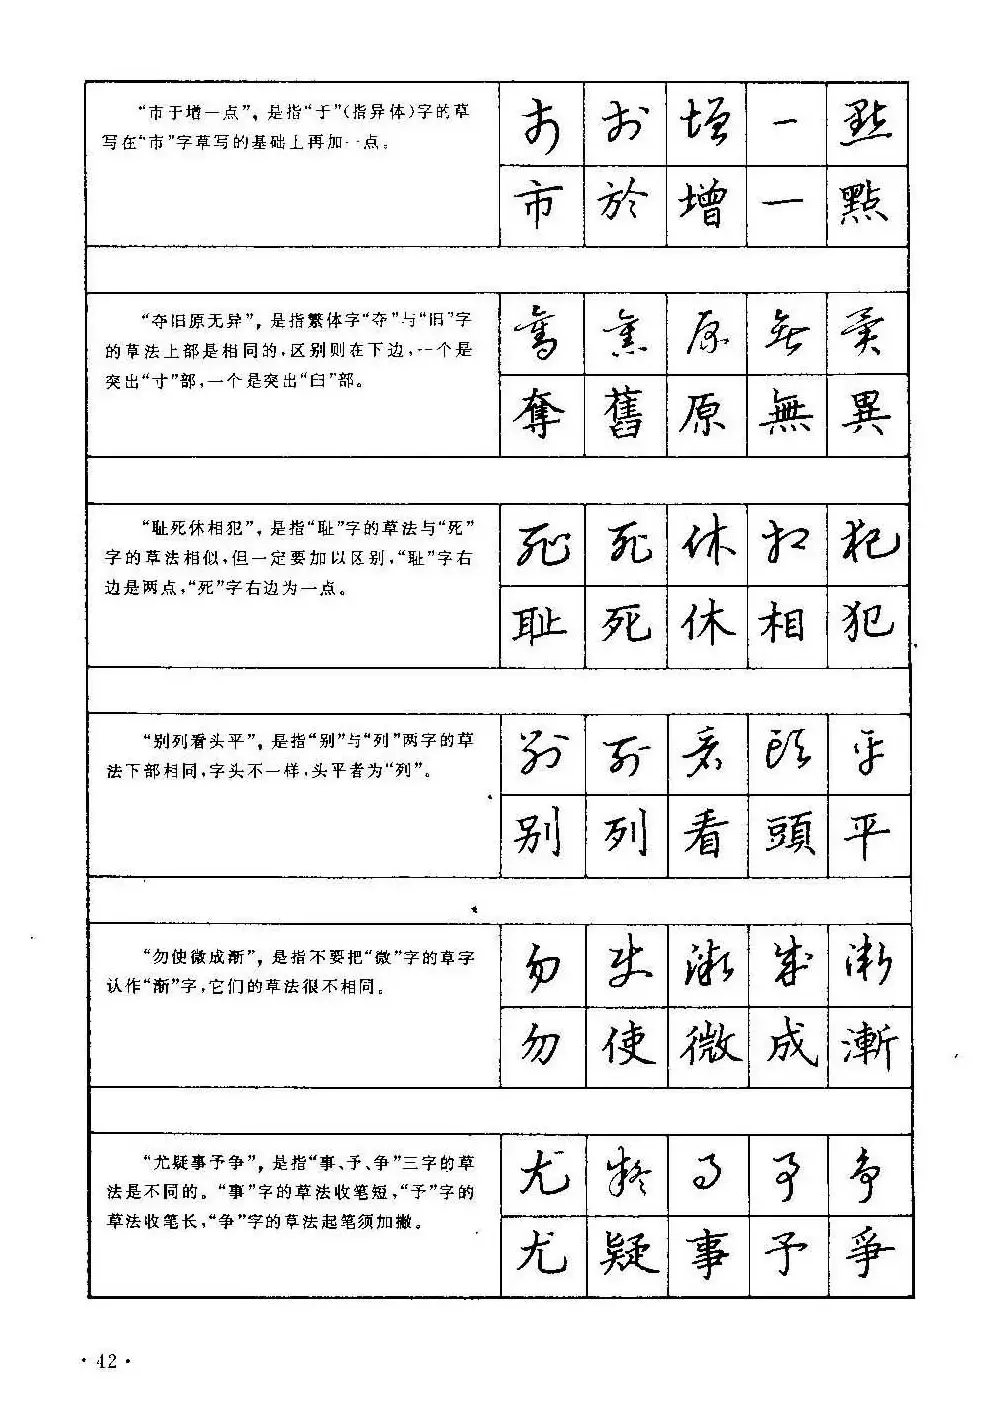 “市于增一点”，是指“于”(指异体)字的草
写在“市”字草写的基础上再加一点。
市於增一點
市於增一點
“夺旧原无异”，是指繁体字“夺”与“旧”字
的草法上部是相同的，区别则在下边，一个是
突出“寸”部，一个是突出“臼”部。
奪舊原無異
奪舊原無異
“耻死休相犯”，是指“耻”字的草法与“死”
字的草法相似，但一定要加以区别，“耻”字右
边是两点，“死”字右边为一点。
耻死休相犯
耻死休相犯
“别列看头平”，是指“别”与“列”两字的草
法下部相同，字头不一样，头平者为“列”。
别列看頭平
别列看頭平
“勿使微成渐”，是指不要把“微”字的草字
认作“渐”字，它们的草法很不相同。
勿使微成漸
勿使微成漸
“尤疑事予争”，是指“事、予、争”三字的草
法是不同的。“事”字的草法收笔短，“予”字的
草法收笔长，“争”字的草法起笔须加撇。
尤疑事予爭
尤疑事予爭
·42·